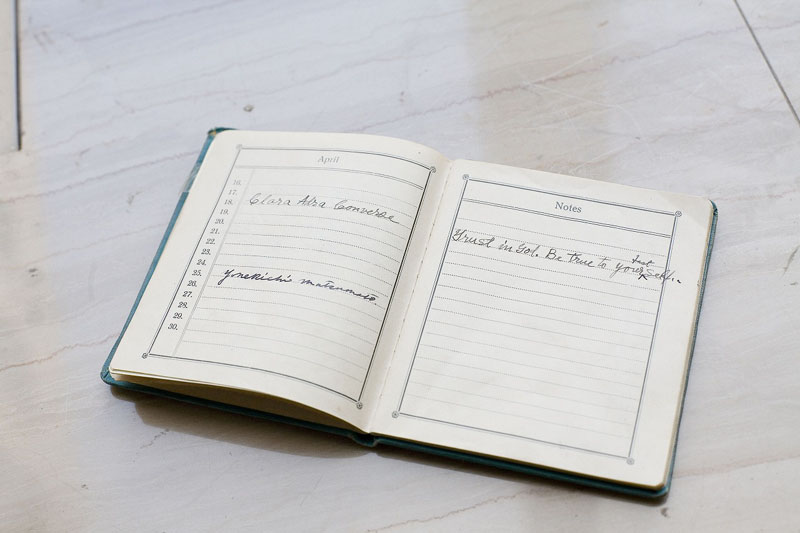 April
16.
17.
18. Clara Adra Converse
19.
20.
21.
22.
23.
24.
25. Yonekichi Matsumoto.
26.
27.
28.
29.
30.
Notes
Trust in God. Be true to your best Self.